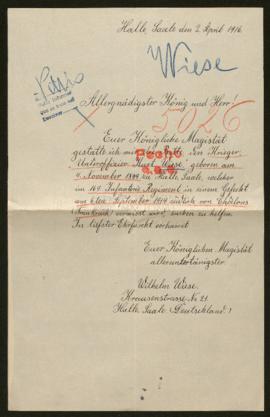 Halle, Saale den 2. April 1916
Wiese
Allergnädigster König und Herr!
5026
Euer Königliche Magistät
gestatte ich mir
den Krieger
Unteroffizier Kurt Wiese, geboren am
4. November 1894 zu Halle, Saale, welcher
im 164 Infanterie Regiment in einem Gefecht
am 6ten September 1914 südlich von Chalons
(Frankreich) vermisst wird, suchen zu helfen.
In tiefster Ehrfurcht verharrt
Euer Königlichen Magistät
alleruntertänigster
Wilhelm Wiese.
Krausenstrasse Nr 21.
Halle, Saale (Deutschland)